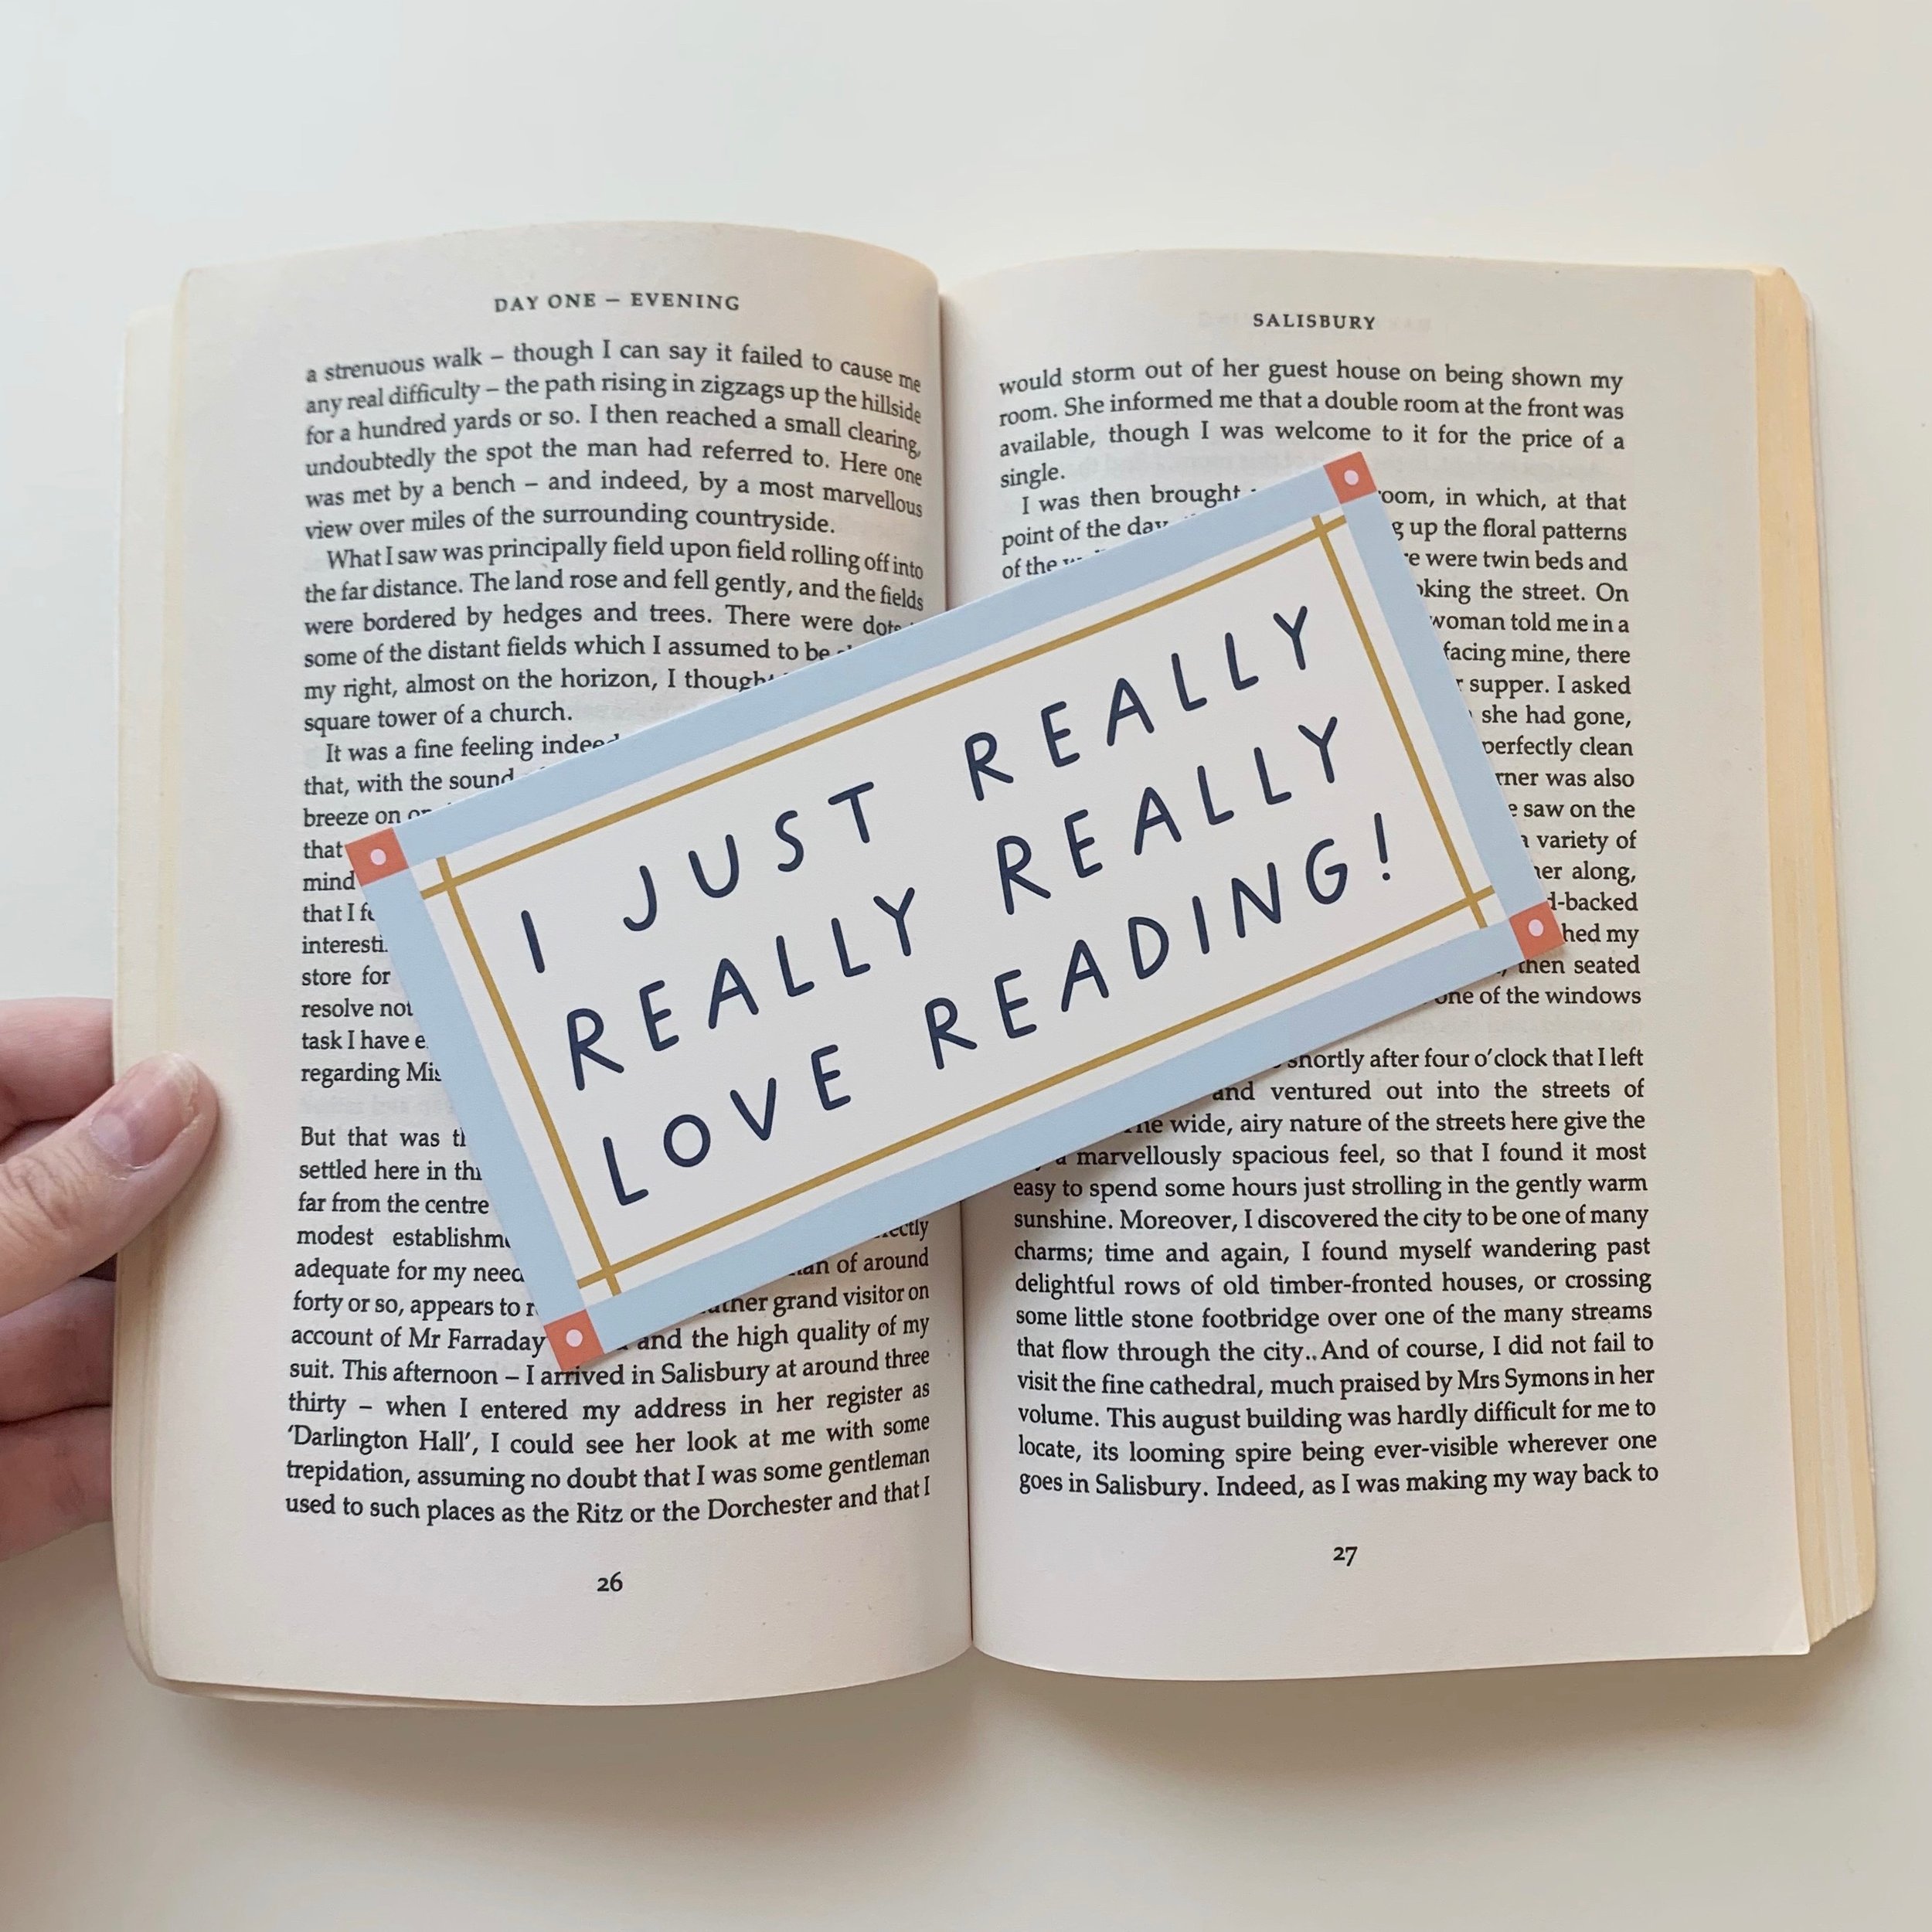 DAY ONE – EVENING
a strenuous walk – though I can say it failed to cause me
any real difficulty – the path rising in zigzags up the hillside
for a hundred yards or so. I then reached a small clearing,
undoubtedly the spot the man had referred to. Here one
was met by a bench – and indeed, by a most marvellous
view over miles of the surrounding countryside.
What I saw was principally field upon field rolling off into
the far distance. The land rose and fell gently, and the fields
were bordered by hedges and trees. There were dots
some of the distant fields which I assumed to be
my right, almost on the horizon, I thought
square tower of a church.
It was a fine feeling indeed
that, with the sound
breeze on
that
mind
that I
store for
resolve not
task I have
regarding
But that was
settled here in
far from the centre
modest
adequate for my
of around
forty or so, appears to
grand visitor on
account of Mr Farraday
and the high quality of my
suit. This afternoon – I arrived in Salisbury at around three
thirty – when I entered my address in her register as
'Darlington Hall', I could see her look at me with some
trepidation, assuming no doubt that I was some gentleman
used to such places as the Ritz or the Dorchester and that I
26
I JUST REALLY
REALLY REALLY
LOVE READING!
SALISBURY
would storm out of her guest house on being shown my
room. She informed me that a double room at the front was
available, though I was welcome to it for the price of a
single.
I was then brought in which, at that
point of the day up the floral patterns
of the were twin beds and
the street. On
woman told me in a
facing mine, there
supper. I asked
she had gone,
perfectly clean
was also
saw on the
variety of
along,
my
then seated
one of the windows
shortly after four o'clock that I left
and ventured out into the streets of
wide, airy nature of the streets here give the
marvellously spacious feel, so that I found it most
easy to spend some hours just strolling in the gently warm
sunshine. Moreover, I discovered the city to be one of many
charms; time and again, I found myself wandering past
delightful rows of old timber-fronted houses, or crossing
some little stone footbridge over one of the many streams
that flow through the city.. And of course, I did not fail to
visit the fine cathedral, much praised by Mrs Symons in her
volume. This august building was hardly difficult for me to
locate, its looming spire being ever-visible wherever one
goes in Salisbury. Indeed, as I was making my way back to
27